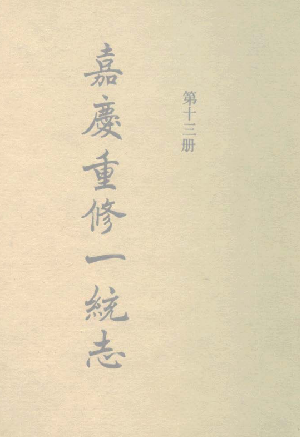 第十三册
嘉慶重修一統志